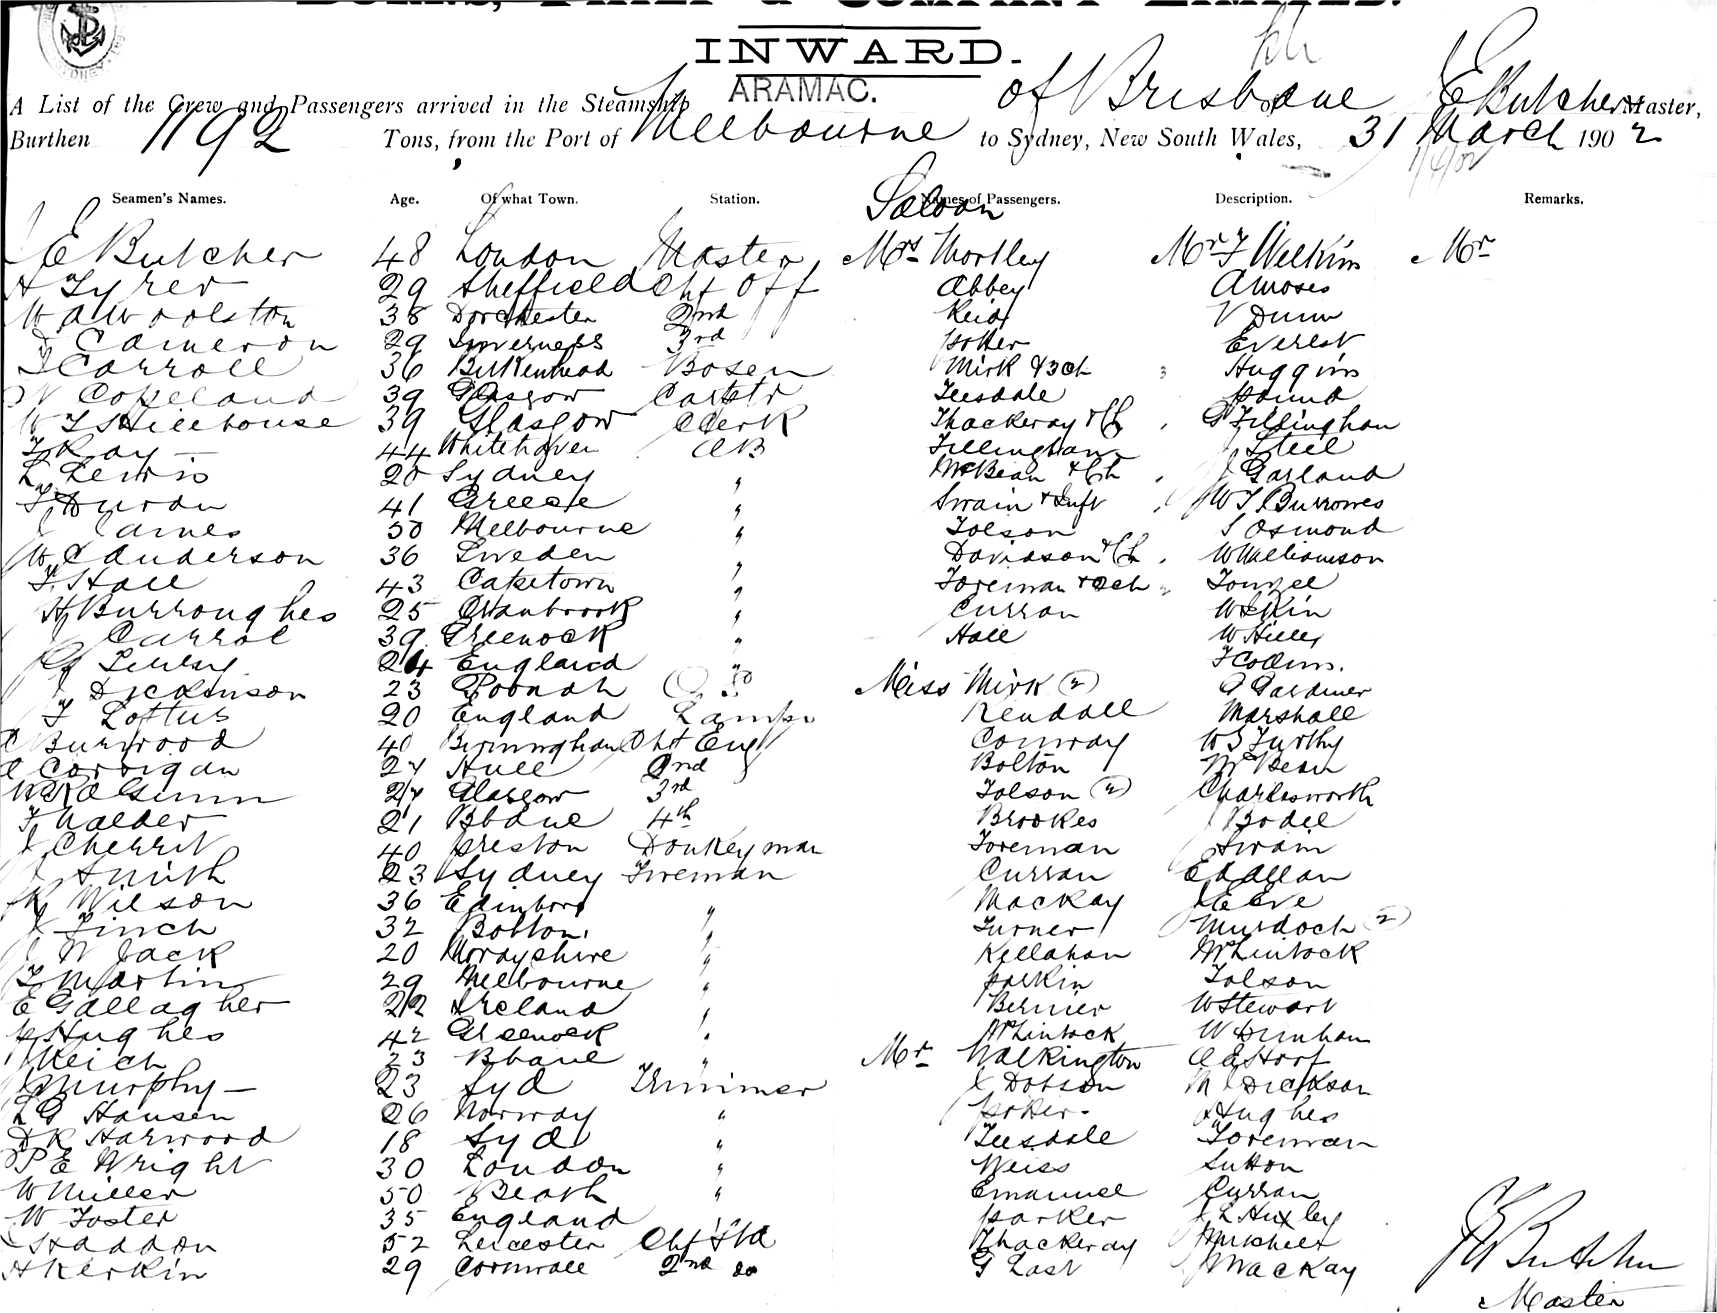 BURNS, PHILP & COMPANY LIMITED.
INWARD.
A List of the Crew and Passengers arrived in the Steamship ARAMAC. of Brisbane E Butcher Master,
Burthen 1192 Tons, from the Port of Melbourne to Sydney, New South Wales, 31 March 1902
1/4/02
Seamen's Names. Age. Of what Town. Station. Names of Passengers. Description. Remarks.
Saloon
J E Butcher 48 London Master Mrs Mortley Mr F Welkin Mr
A Tyrer 29 Sheffield Chf Off Abbey A Moses
W A Woolston 38 Dorchester 2nd Reid V Dunn
D Cameron 29 Inverness 3rd Potter Everest
T Carroll 36 Birkenhead Bosen Mirk & 3 ch Huggins
W Copeland 39 Glasgow Carptr Teesdale Pound
W T S Hillhouse 39 Glasgow Clerk Thackeray & Ch G Fillingham
T Ray 44 Whitehaven AB Fillingham J Steel
L Lewis 20 Sydney " McBean & Ch J Garland
T Duran 41 Greece " Swain & Inft W T Burrowes
J James 50 Melbourne " Tolson S Osmond
W C Anderson 36 Sweden " Davidson & Ch W Williamson
T Hall 43 Capetown " Foreman & 2 ch
H Burroughes 25 Cranbrook " Curran
J Carrol 39 Greenock " Hall W Hilly
24 England " F Collins.
J Dickinson 23 Poonah OS Miss Mirk (2) G Gardiner
T Loftus 20 England Lamps Kendall Marshall
C Burwood 40 Birmingham Cht Eng Conway W S Furthy
C Corrigan 27 Hull 2nd Bolton McBean
W R A Gunn 27 Glasgow 3rd Tolson (2) Charlesworth
T Walder 21 Bbane 4th Brookes J Bodel
J Cherrit 40 Preston Donkeyman Foreman Swain
J Smith 23 Sydney Fireman Curran E A Allan
R Wilson 36 Edinboro " MacKay J Eeve
J Finch 32 Bolton " Turner Murdoch (2)
J W Jack 20 Morayshire " Kellahan McLintock
T Martin 29 Melbourne " Parkin Tolson
E Gallagher 22 Ireland " Bernier W Stewart
H Hughes 42 Greenock " McLintock W Dunham
J Keich 23 Bbane " Mr Walkington A E Horf
J Murphy 23 Syd Trimmer J Dobson M J Dickson
L G Hansen 26 Norway " Potter Hughes
D R Harwood 18 Syd " Teesdale Foreman
P E Wright 30 London " Weiss Sutton
W Miller 50 Beath " Emanuel Curran
W Foster 35 England " Parker J L Huxley
Haddon 52 Leicester Chf Std Thackeray
H Kerkin 29 Cornwall 2nd do G Last J MacKay
J E Butcher
Master